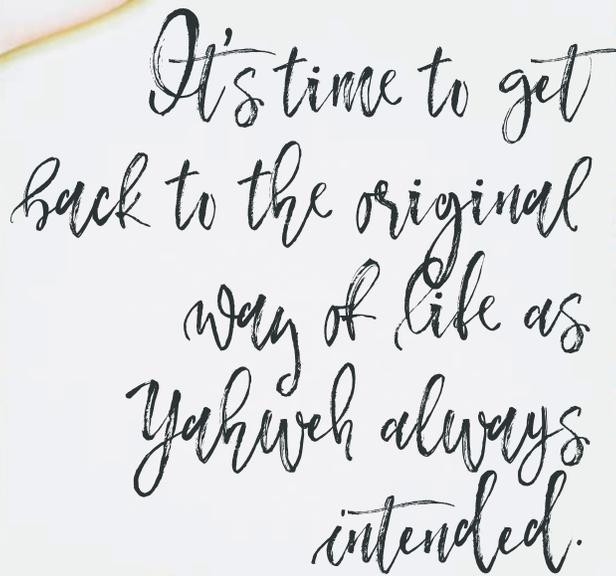 It's time to get
back to the original
way of life as
Yahweh always
intended.